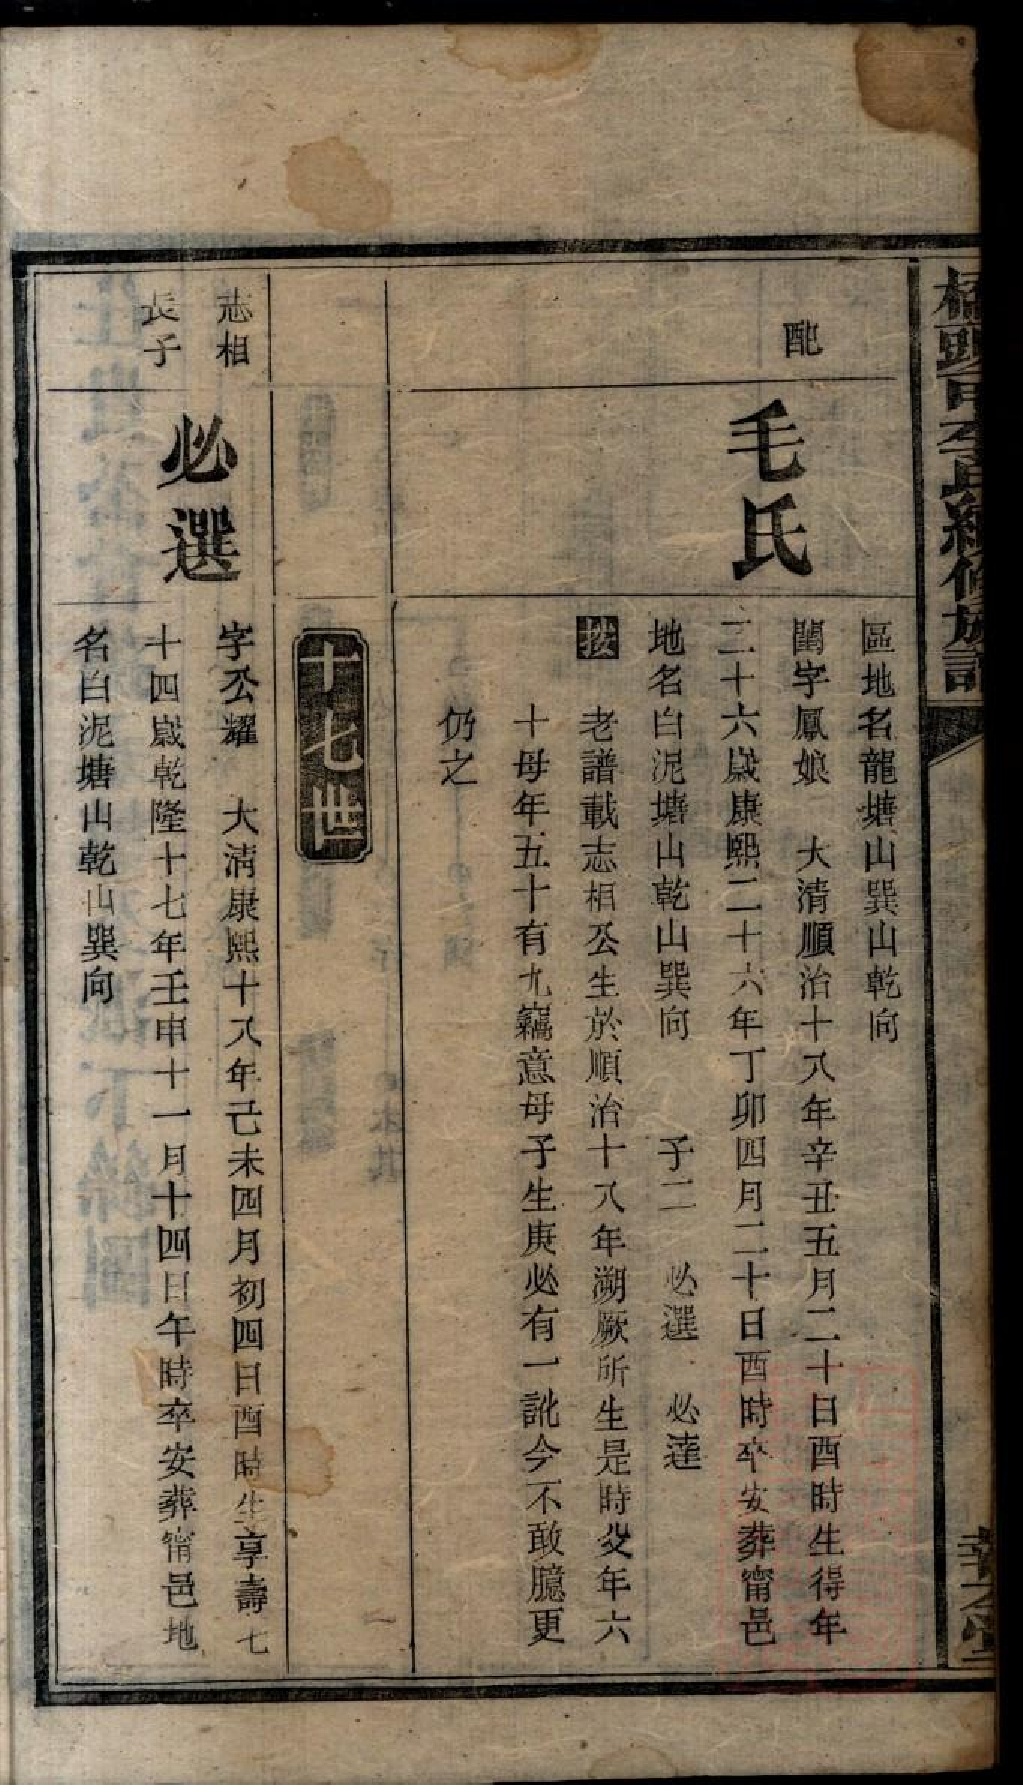 頭甲李氏續修族譜
區地名龍塘山巽山乾向
配
毛氏
閨字鳳娘　大清順治十八年辛丑五月二十日酉時生得年
二十六歲康熙二十六年丁卯四月二十日酉時卒安葬甯邑
地名白泥塘山乾山巽向　子二　必選　必達
按
老譜載志相公生於順治十八年溯厥所生是時父年六
十母年五十有九竊意母子生庚必有一訛今不敢臆更
仍之
十七世
志相
長子
必選
字公耀　大清康熙十八年己未四月初四日酉時生享壽七
十四歲乾隆十七年壬申十一月十四日午時卒安葬甯邑地
名白泥塘山乾山巽向